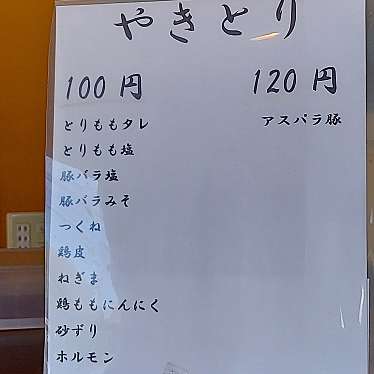 やきとり
100円
とりももタレ
とりもも塩
豚バラ塩
豚バラみそ
つくね
鶏皮
ねぎま
鶏ももにんにく
砂ずり
ホルモン
120円
アスパラ豚